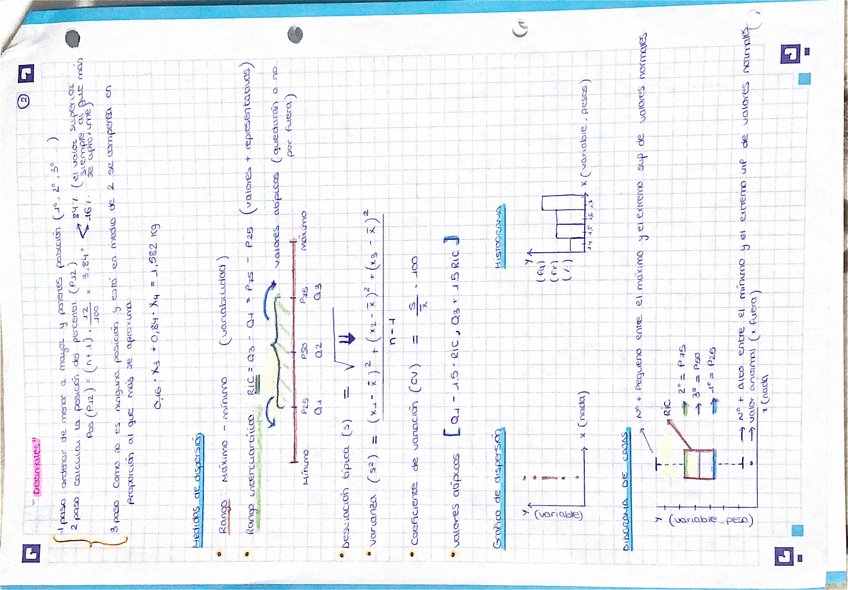 ②
"Decimales"
1 paso ordenar de menor a mayor y pones posición (1º, 2º, 3º...)
2 paso calcular la posición del percentil (P12)
Pos (P12) = (n+1) · 12/100 = 3,84 = < 84% (el valor superior
16%. siempre al que más
se aproxime)
3 paso como no es ninguna posición y está en medio de 2 se compensa en
proporción al que más se aproxima
0,16 · X3 + 0,84 · X4 = 1,582 Kg
Medidas de dispersión
• Rango máximo - mínimo (variabilidad)
• Rango intercuartílico RIC = Q3 - Q1 = P75 - P25 (valores + representativos)
valores atípicos (quedarán o no
por fuera)
Mínimo P25 P50 P75 máximo
Q1 Q2 Q3
• Desviación típica (s) = √
• varianza (s²) = (x1 - x̄)² + (x2 - x̄)² + (x3 - x̄)²
n-1
• Coeficiente de variación (CV) = s/x̄ · 100
• valores atípicos [Q1 - 1,5 · RIC, Q3 + 1,5 RIC]
Gráfico de dispersión
Y (variable)
X (nada)
HISTOGRAMA
Y
(fa)
(fr)
(%)
X (variable, pesos)
DIAGRAMA DE CAJAS
Nº + pequeño entre el máximo y el extremo sup de valores normales
RIC
→ 2º = P75
→ 3º = P50
→ 1º = P25
Y (variable, peso)
→ Nº + alto entre el mínimo y el extremo inf de valores normales
→ valor anormal (x fuera)
X (nada)